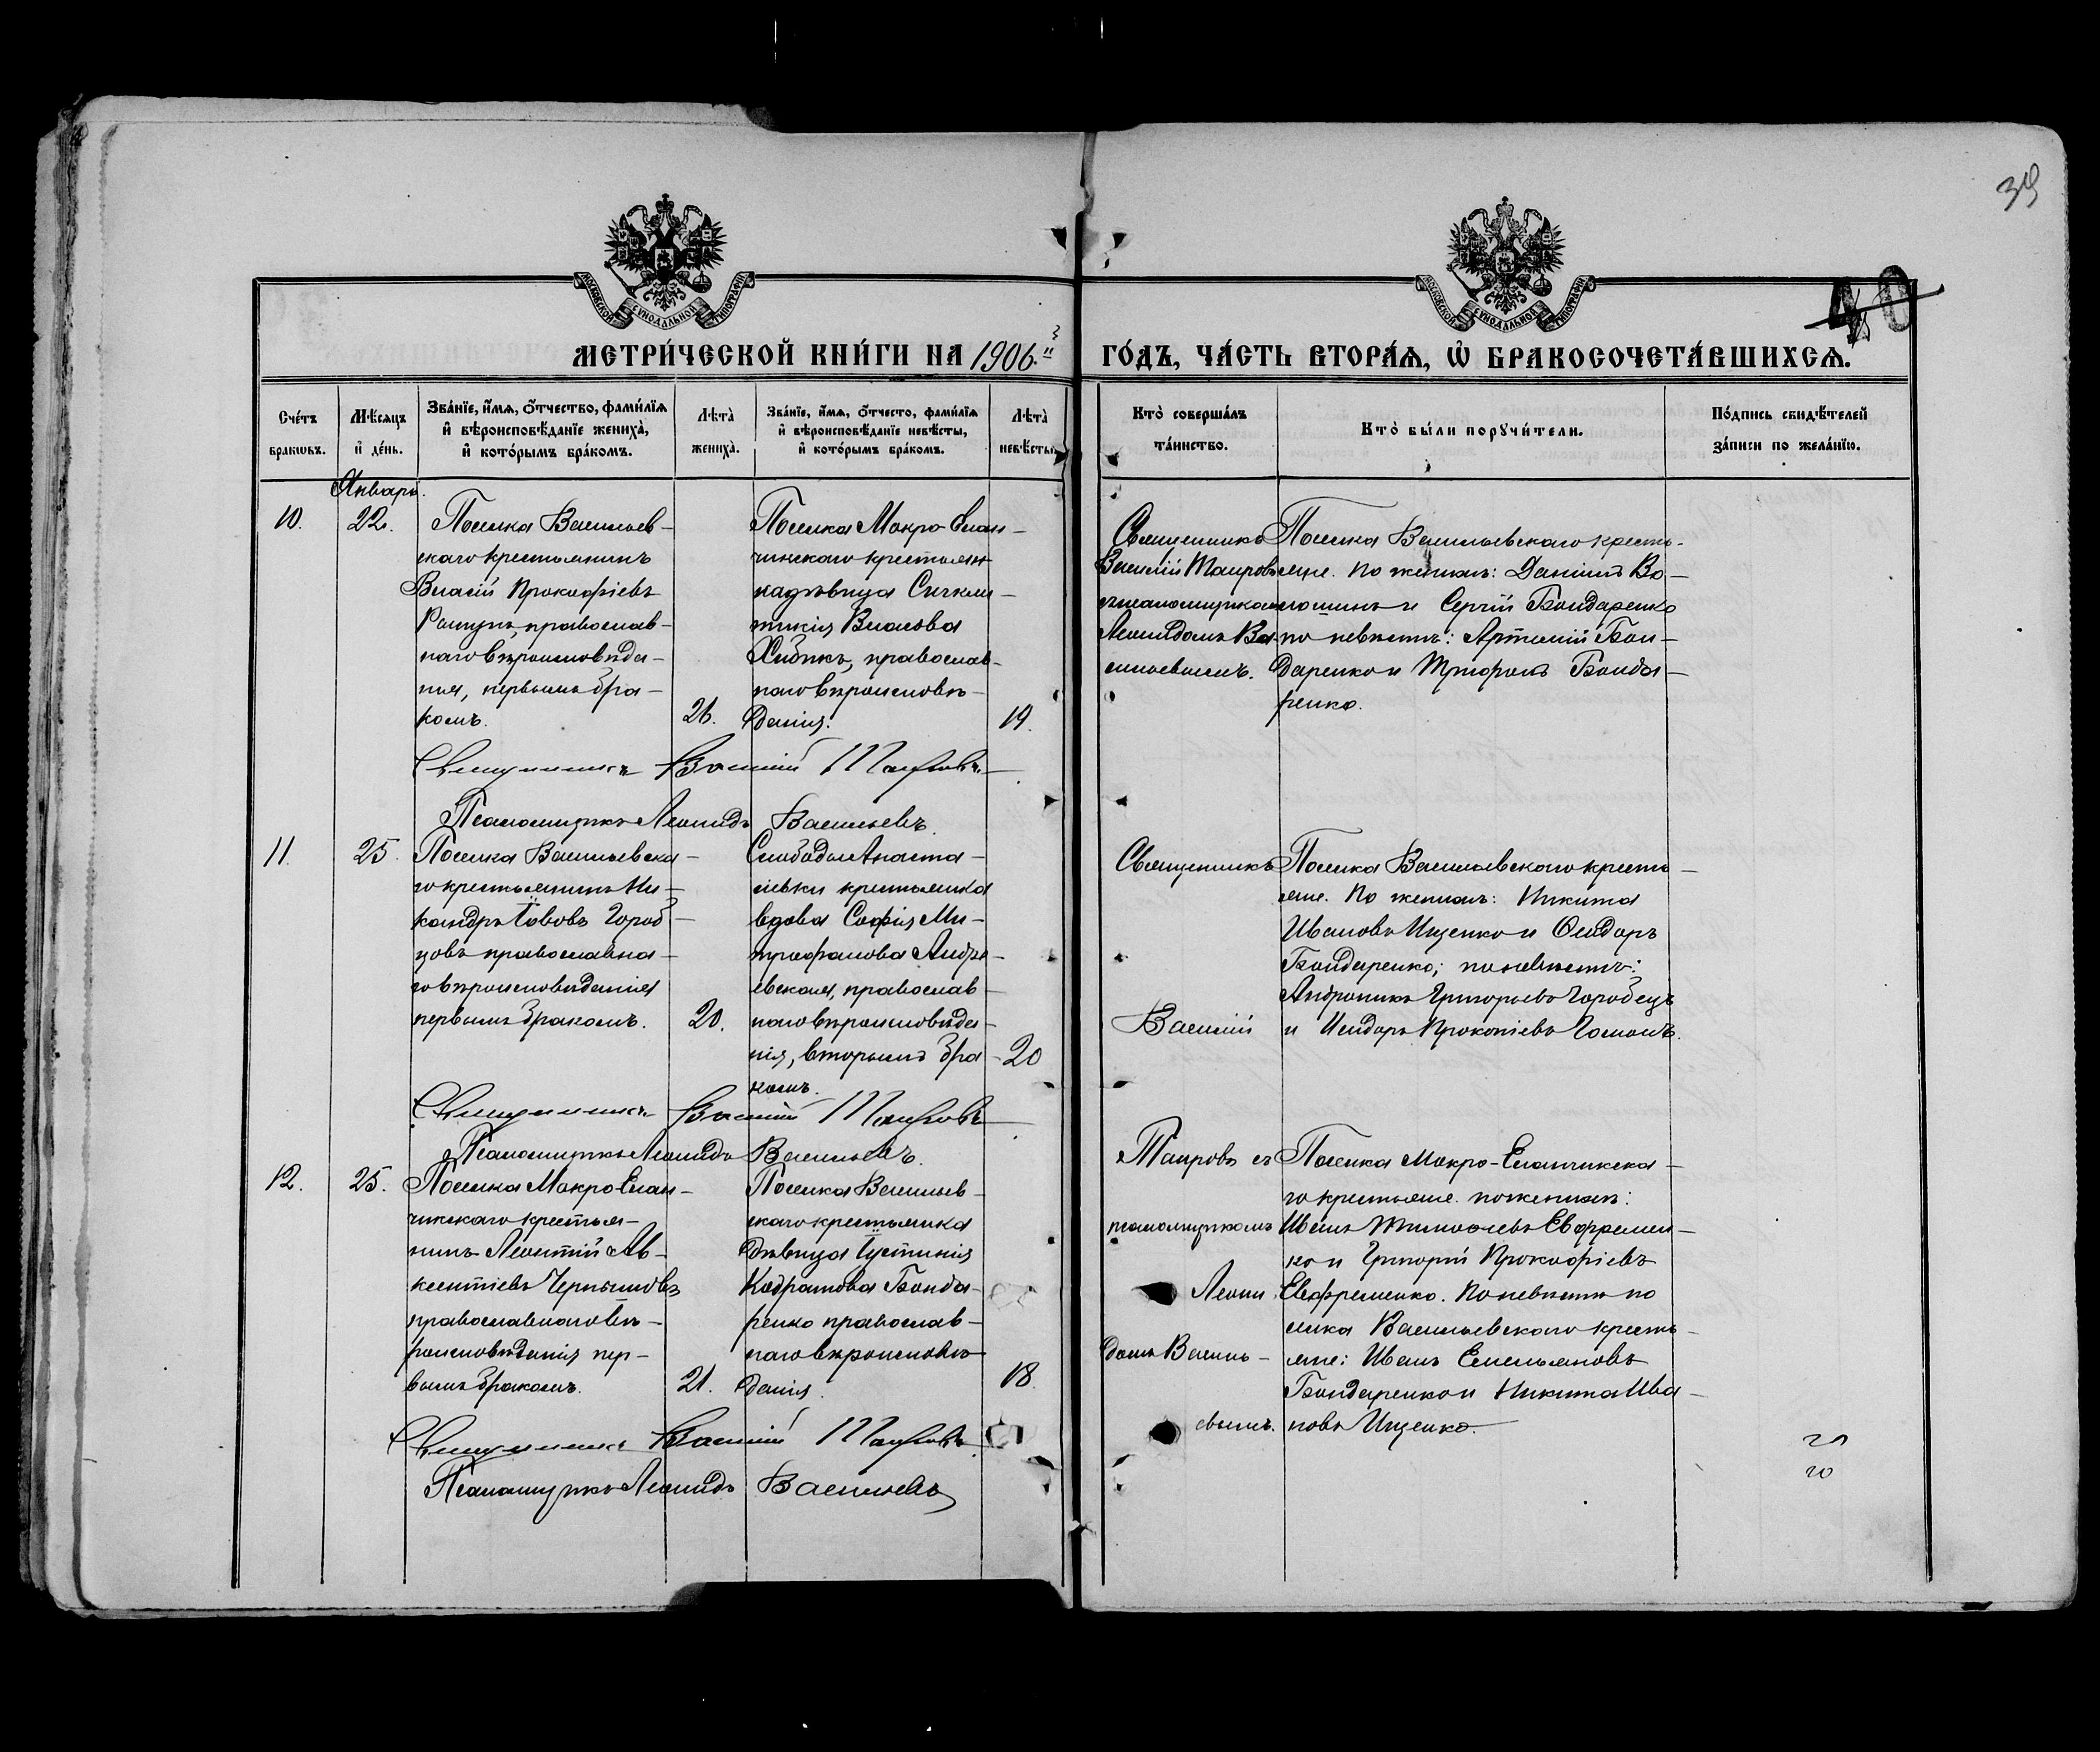 39
40
МОСКОВСКОЙ СУНОДАЛЬНОЙ ТИПОГРАФІИ
МОСКОВСКОЙ СУНОДАЛЬНОЙ ТИПОГРАФІИ
МЕТРИ́ЧЕСКОЙ КНИ́ГИ НА 1906.й
ГО́ДЪ, ЧА́СТЬ ВТОРА́Ѧ, Ѽ БРАКОСОЧЕТА́ВШИХСѦ.
Сче́тъ бракѡвъ.
Мѣ́сяцъ и҆ де́нь.
Зва́нїе, и҆́мѧ, ѻ҆́тчество, фами́лїѧ
и҆ вѣроисповѣ́данїе жениха̀,
и҆ кото́рымъ бра́комъ.
Лѣта̀ жениха̀.
Зва́нїе, и҆́мѧ, ѻ҆́тчесто, фами́лїѧ
и҆ вѣроисповѣ́данїе невѣ́сты,
и҆ кото́рымъ бра́комъ.
Лѣта̀ невѣ́сты.
Кто̀ соверша́лъ
та́инство.
Кто̀ бы́ли порꙋчи́тели.
По́дпись свидѣ́телей
за́писи по жела́нїю.
Январь.
10.
22.
Поселка Васильев-
скаго крестьянинъ
Власій Прокофіевъ
православ-
наго вѣроисповѣда-
нія, первымъ бра-
комъ.
26.
Поселка Мокро Елан-
чикскаго крестьян-
ка дѣвица Синкли-
тикія Власова
Хибикъ, православ-
наго вѣроисповѣ-
данія.
19.
Священникъ
Василій Таировъ
съ псаломщикомъ
Леонидомъ Ва-
сильевымъ.
Поселка Васильевскаго кресть-
яне. По женихѣ: Даніилъ Во-
лошинъ и Сергій Бондаренко
по невѣстѣ: Артемій Бон-
даренко и Трифонъ Бонда-
ренко.
Священникъ Василій Таировъ
Псаломщикъ Леонидъ Васильевъ.
11.
25.
Поселка Васильевска-
го крестьянинъ Ни-
кандръ Іововъ Город-
цовъ православна-
го вѣроисповѣданія
первымъ бракомъ.
20.
Слободы Анаста-
сіевки крестьянка
вдова Софія Ми-
трофанова Андре-
евская, православ-
наго вѣроисповѣда-
нія, вторымъ бра-
комъ.
20
Священникъ
Василій
Поселка Васильевскаго кресть-
яне. По женихѣ: Никита
Ивановъ Ищенко и Ѳеодоръ
Бондаренко; по невѣстѣ:
Андроникъ Григорьевъ Городецъ
и Исидоръ Прокопіевъ Гомонъ.
Священникъ Василій Таировъ
Псаломщикъ Леонидъ Васильевъ.
12.
25.
Поселка Мокро Елан-
чикскаго крестья-
нинъ Леонтій Ав-
ксентіевъ Чернышовъ
православнаго вѣ-
роисповѣданія пер-
вымъ бракомъ.
21.
Поселка Васильев-
скаго крестьянка
дѣвица Іустинія
Кодратова Бонда-
ренко православ-
наго вѣроисповѣ-
данія.
18.
Таировъ съ
псаломщикомъ
Леони
домъ Василь-
евымъ.
Поселка Мокро-Еланчикска-
го крестьяне. по женихѣ:
Иванъ Тимоѳеевъ Евфремен-
ко и Григорій Прокофіевъ
Евфременко. По невѣстѣ по
селка Васильевскаго кресть-
яне: Иванъ Емельяновъ
Бондаренко и Никита Ива-
новъ Ищенко.
Священникъ Василій Таировъ.
Псаломщикъ Леонидъ Васильевъ